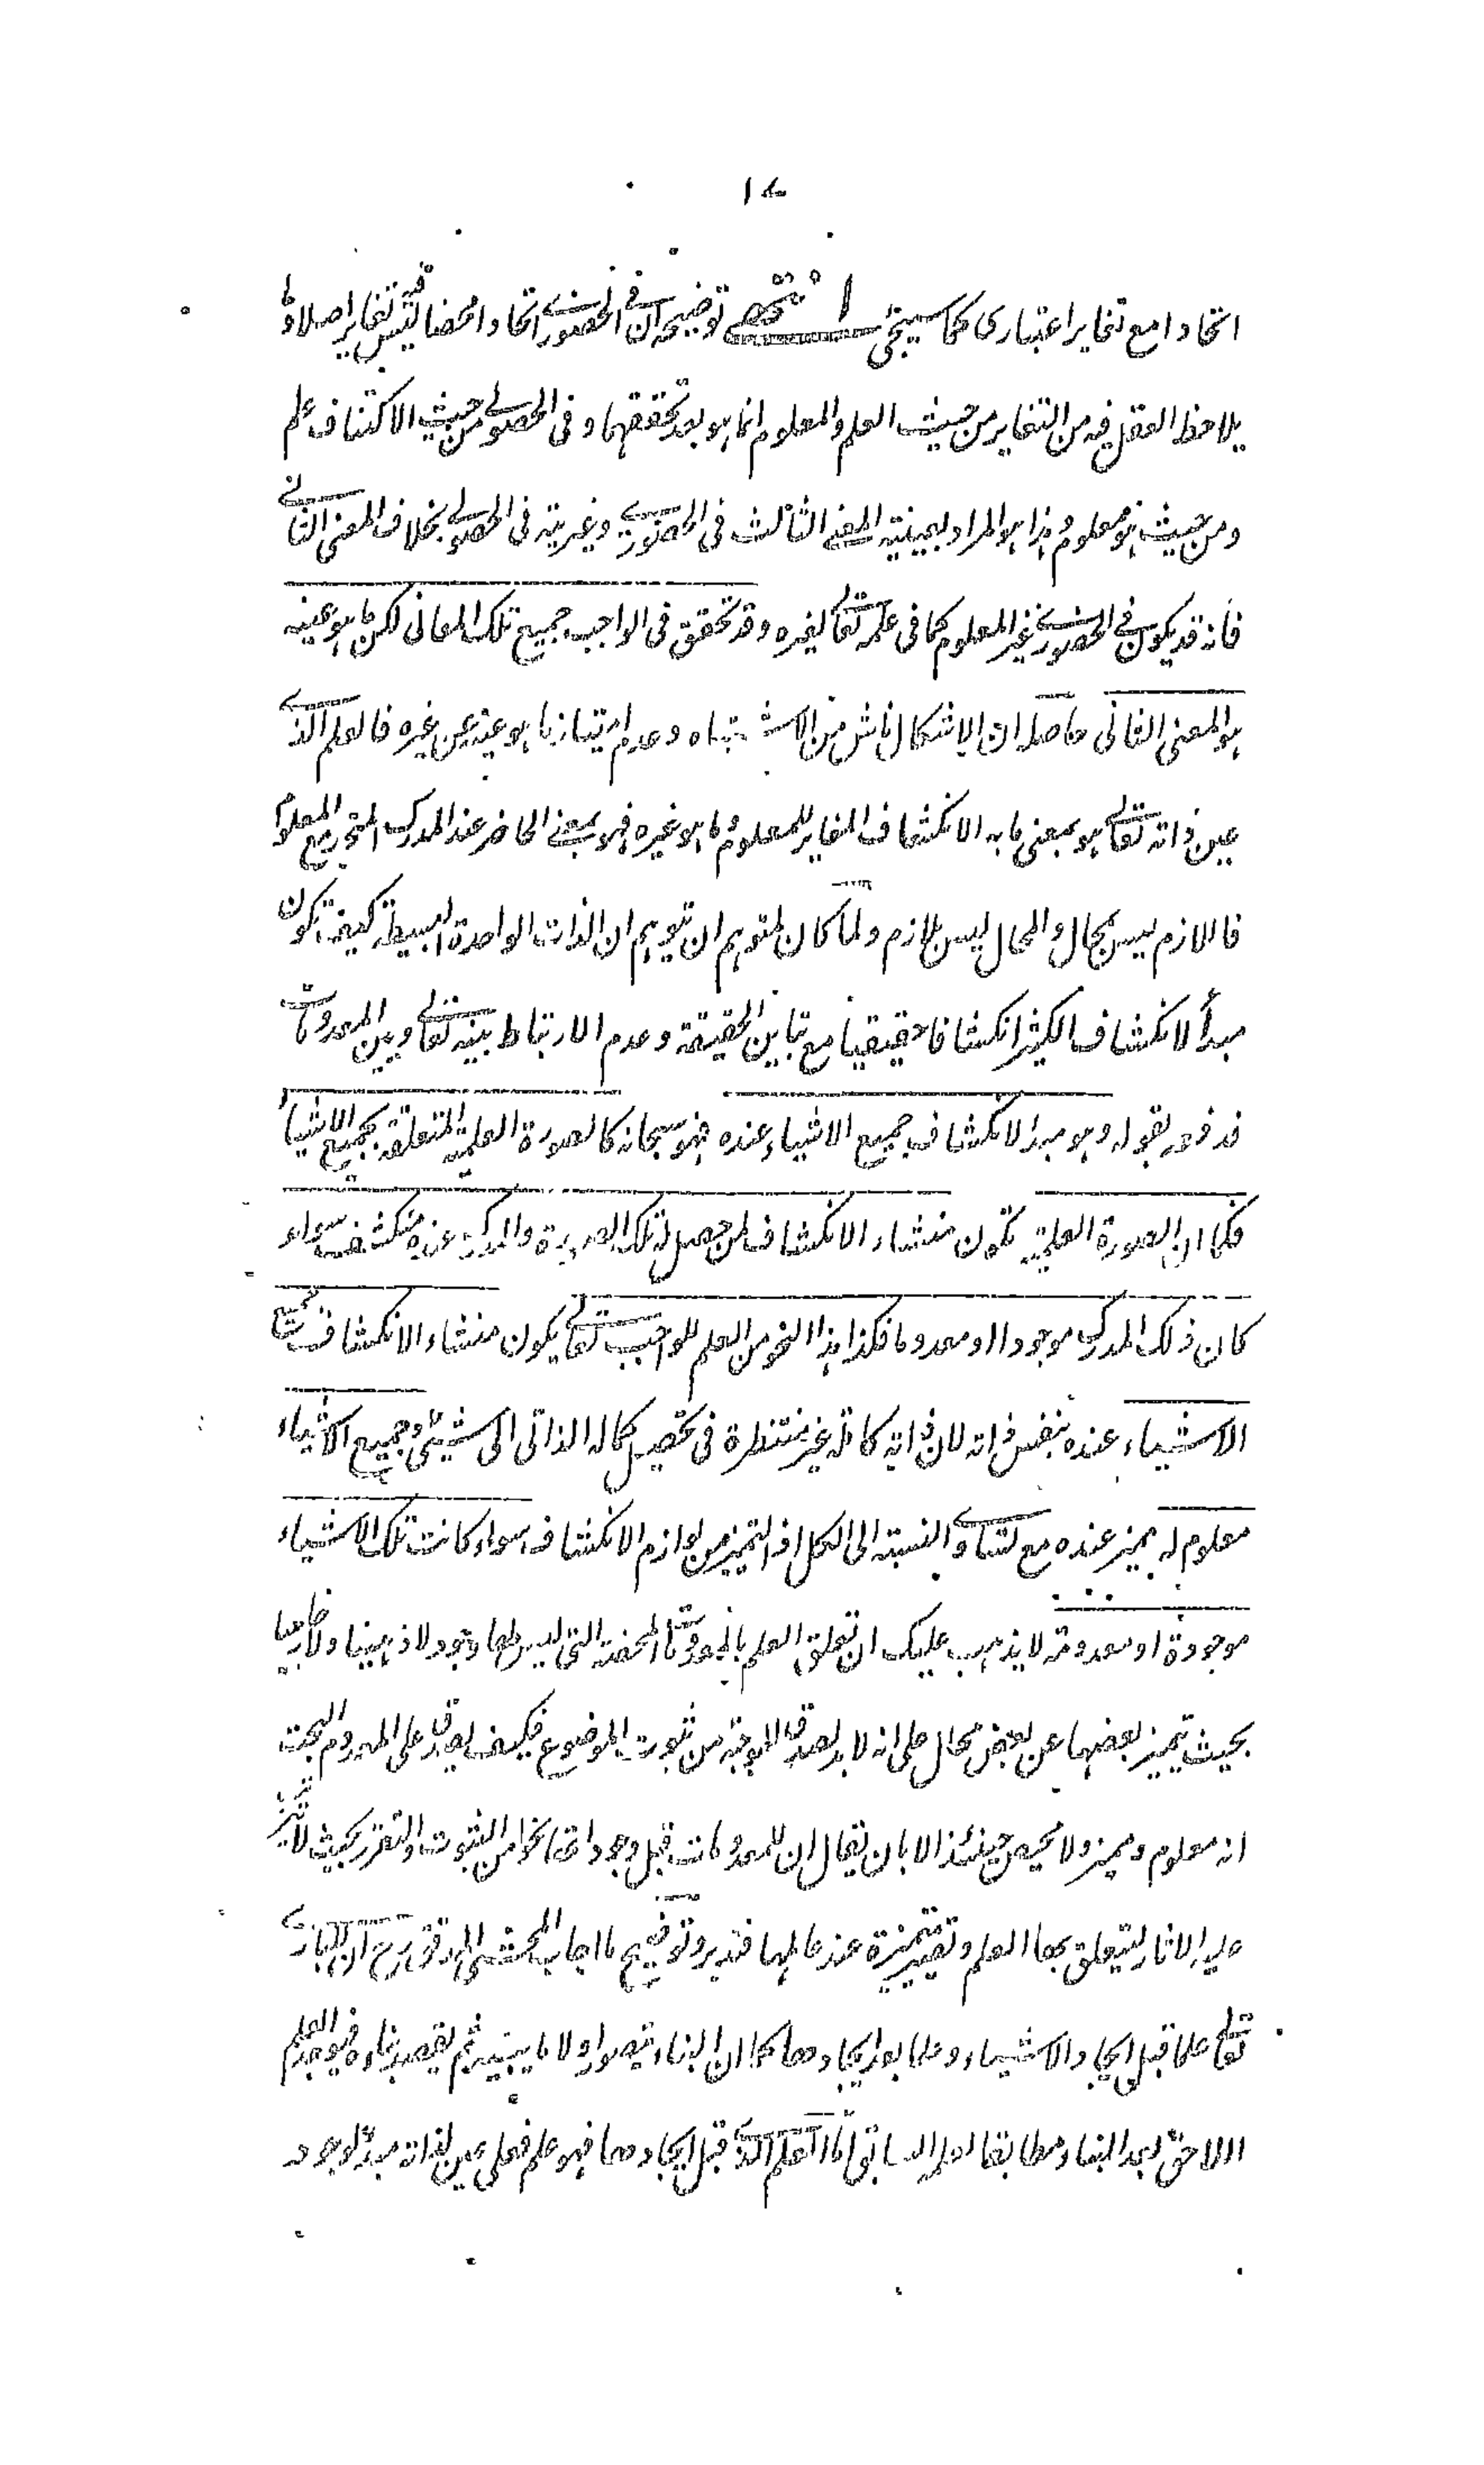 ١٧
اتحادا مع تغاير اعتبارى كما سيجئ انتهى توضيحه ان فى الحضورى اتحادا محضا ليس فيه تغاير اصلا و ما
يلاحظ العقل فيه من التغاير من حيث العلم والمعلوم انما هو بعد تحققهما و فى الحصولى من حيث الاكتناف علم
ومن حيث هو معلوم و هذا هو المراد بعينية المعنى الثالث فى الحضورى وغيريته فى الحصولى بخلاف المعنى الثانى
فانه قد يكون فى الحضورى غير المعلوم كما فى علمه تعالى لغيره وقد تحقق فى الواجب جميع تلك المعانى لكن ما هو عينه
هو المعنى الثانى حاصله ان الاشكال ناش من الاشتباه وعدم امتياز ما هو عينه عن غيره فالعلم الذى
عين ذاته تعالى هو بمعنى ما به الانكشاف المغاير للمعلوم و ما هو غيره فهو بمعنى الحاضر عند المدرك المتحد مع المعلوم
فاللازم ليس بمحال والمحال ليس بلازم ولما كان لمتوهم ان يتوهم ان الذات الواحدة البسيطة كيف تكون
مبدأ لانكشاف الكثير انكشافا حقيقيا مع تباين الحقيقة وعدم الارتباط بينه تعالى وبين المعدومات
فدفعه بقوله وهو مبدأ لانكشاف جميع الاشياء عنده فهو سبحانه كالصورة العلمية المتعلقة بجميع الاشياء
فكما ان الصورة العلمية تكون منشاء الانكشاف لمن حصل له تلك الصورة والمدرك عنده منكشف سواء
كان ذلك المدرك موجودا او معدوما فكذا هذا النحو من العلم للواجب تعالى يكون منشاء الانكشاف جميع
الاشياء عنده بنفس ذاته لان ذاته كاملة غير منتظرة فى تحصيل كماله الذاتى الى شيئ وجميع الاشياء
معلوم له مميز عنده مع تساوى النسبة الى الكل اذ التميز من لوازم الانكشاف سواء كانت تلك الاشياء
موجودة او معدومة لا يذهب عليك ان تعلق العلم بالمعدومات المحضة التى ليس لها وجود لا ذهنيا ولا خارجيا
بحيث يتميز بعضها عن بعض محال على انه لا بد لصدق الموجبة من ثبوت الموضوع فكيف يصدق على المعدوم البحت
انه معلوم ومميز ولا محيص حينئذ الا بان يقال ان للمعدومات قبل وجوداتها نحوا من الثبوت والتقرر بحيث لا يترتب
عليه الاثار ليتعلق بها العلم وتصير متميزة عند عالمها فتدبر وتوضيح ما اجاب المحشى المدقق رح ان للبارى
تعالى علما قبل ايجاد الاشياء وعلما بعد ايجادها كما ان البناء يتصور اولا ما يبنيه ثم يقصد بناءه فيوجد العلم
اللاحق بعد البناء مطابقا للعلم السابق اما العلم الذى قبل ايجادها فهو علم فعلى عين لذاته مبدأ لوجود